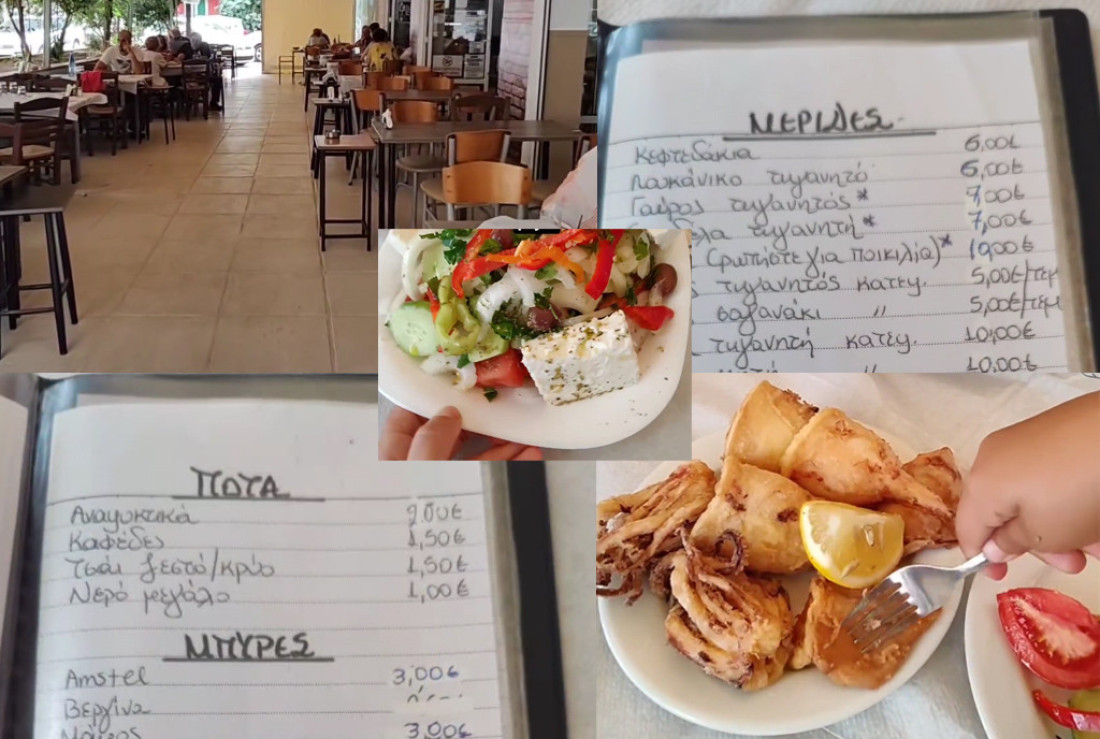 ΜΕΡΙΔΕΣ
Κεφτεδάκια 6,00€
Λουκάνικο τηγανητό 6,00€
Γαύρος τηγανητός* 7,00€
τηγανητή* 7,00€
(ρωτήστε για ποικιλία)* 10,00€
τηγανητός κατεψ. 5,00€/τεμ
σαγανάκι " 5,00€/τεμ
τηγανητή κατεψ. 10,00€
" 10,00€
ΠΟΤΑ
Αναψυκτικά 2.00€
Καφέδες 1,50€
Τσάι ζεστό/κρύο 1,50€
Νερό μεγάλο 1,00€
ΜΠΥΡΕΣ
Amstel 3,00€
Βεργίνα
3,00€